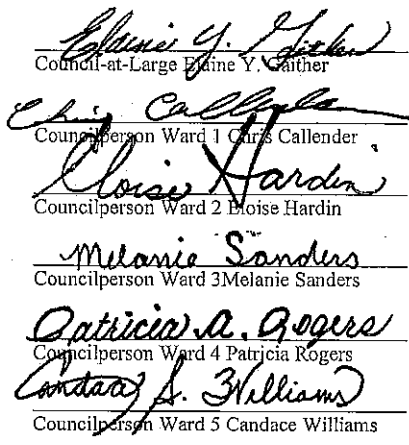 Elaine Y. Gaither
Council-at-Large Elaine Y. Gaither
Chris Callender
Councilperson Ward 1 Chris Callender
Eloise Hardin
Councilperson Ward 2 Eloise Hardin
Melanie Sanders
Councilperson Ward 3Melanie Sanders
Patricia A. Rogers
Councilperson Ward 4 Patricia Rogers
Candace S. Williams
Councilperson Ward 5 Candace Williams